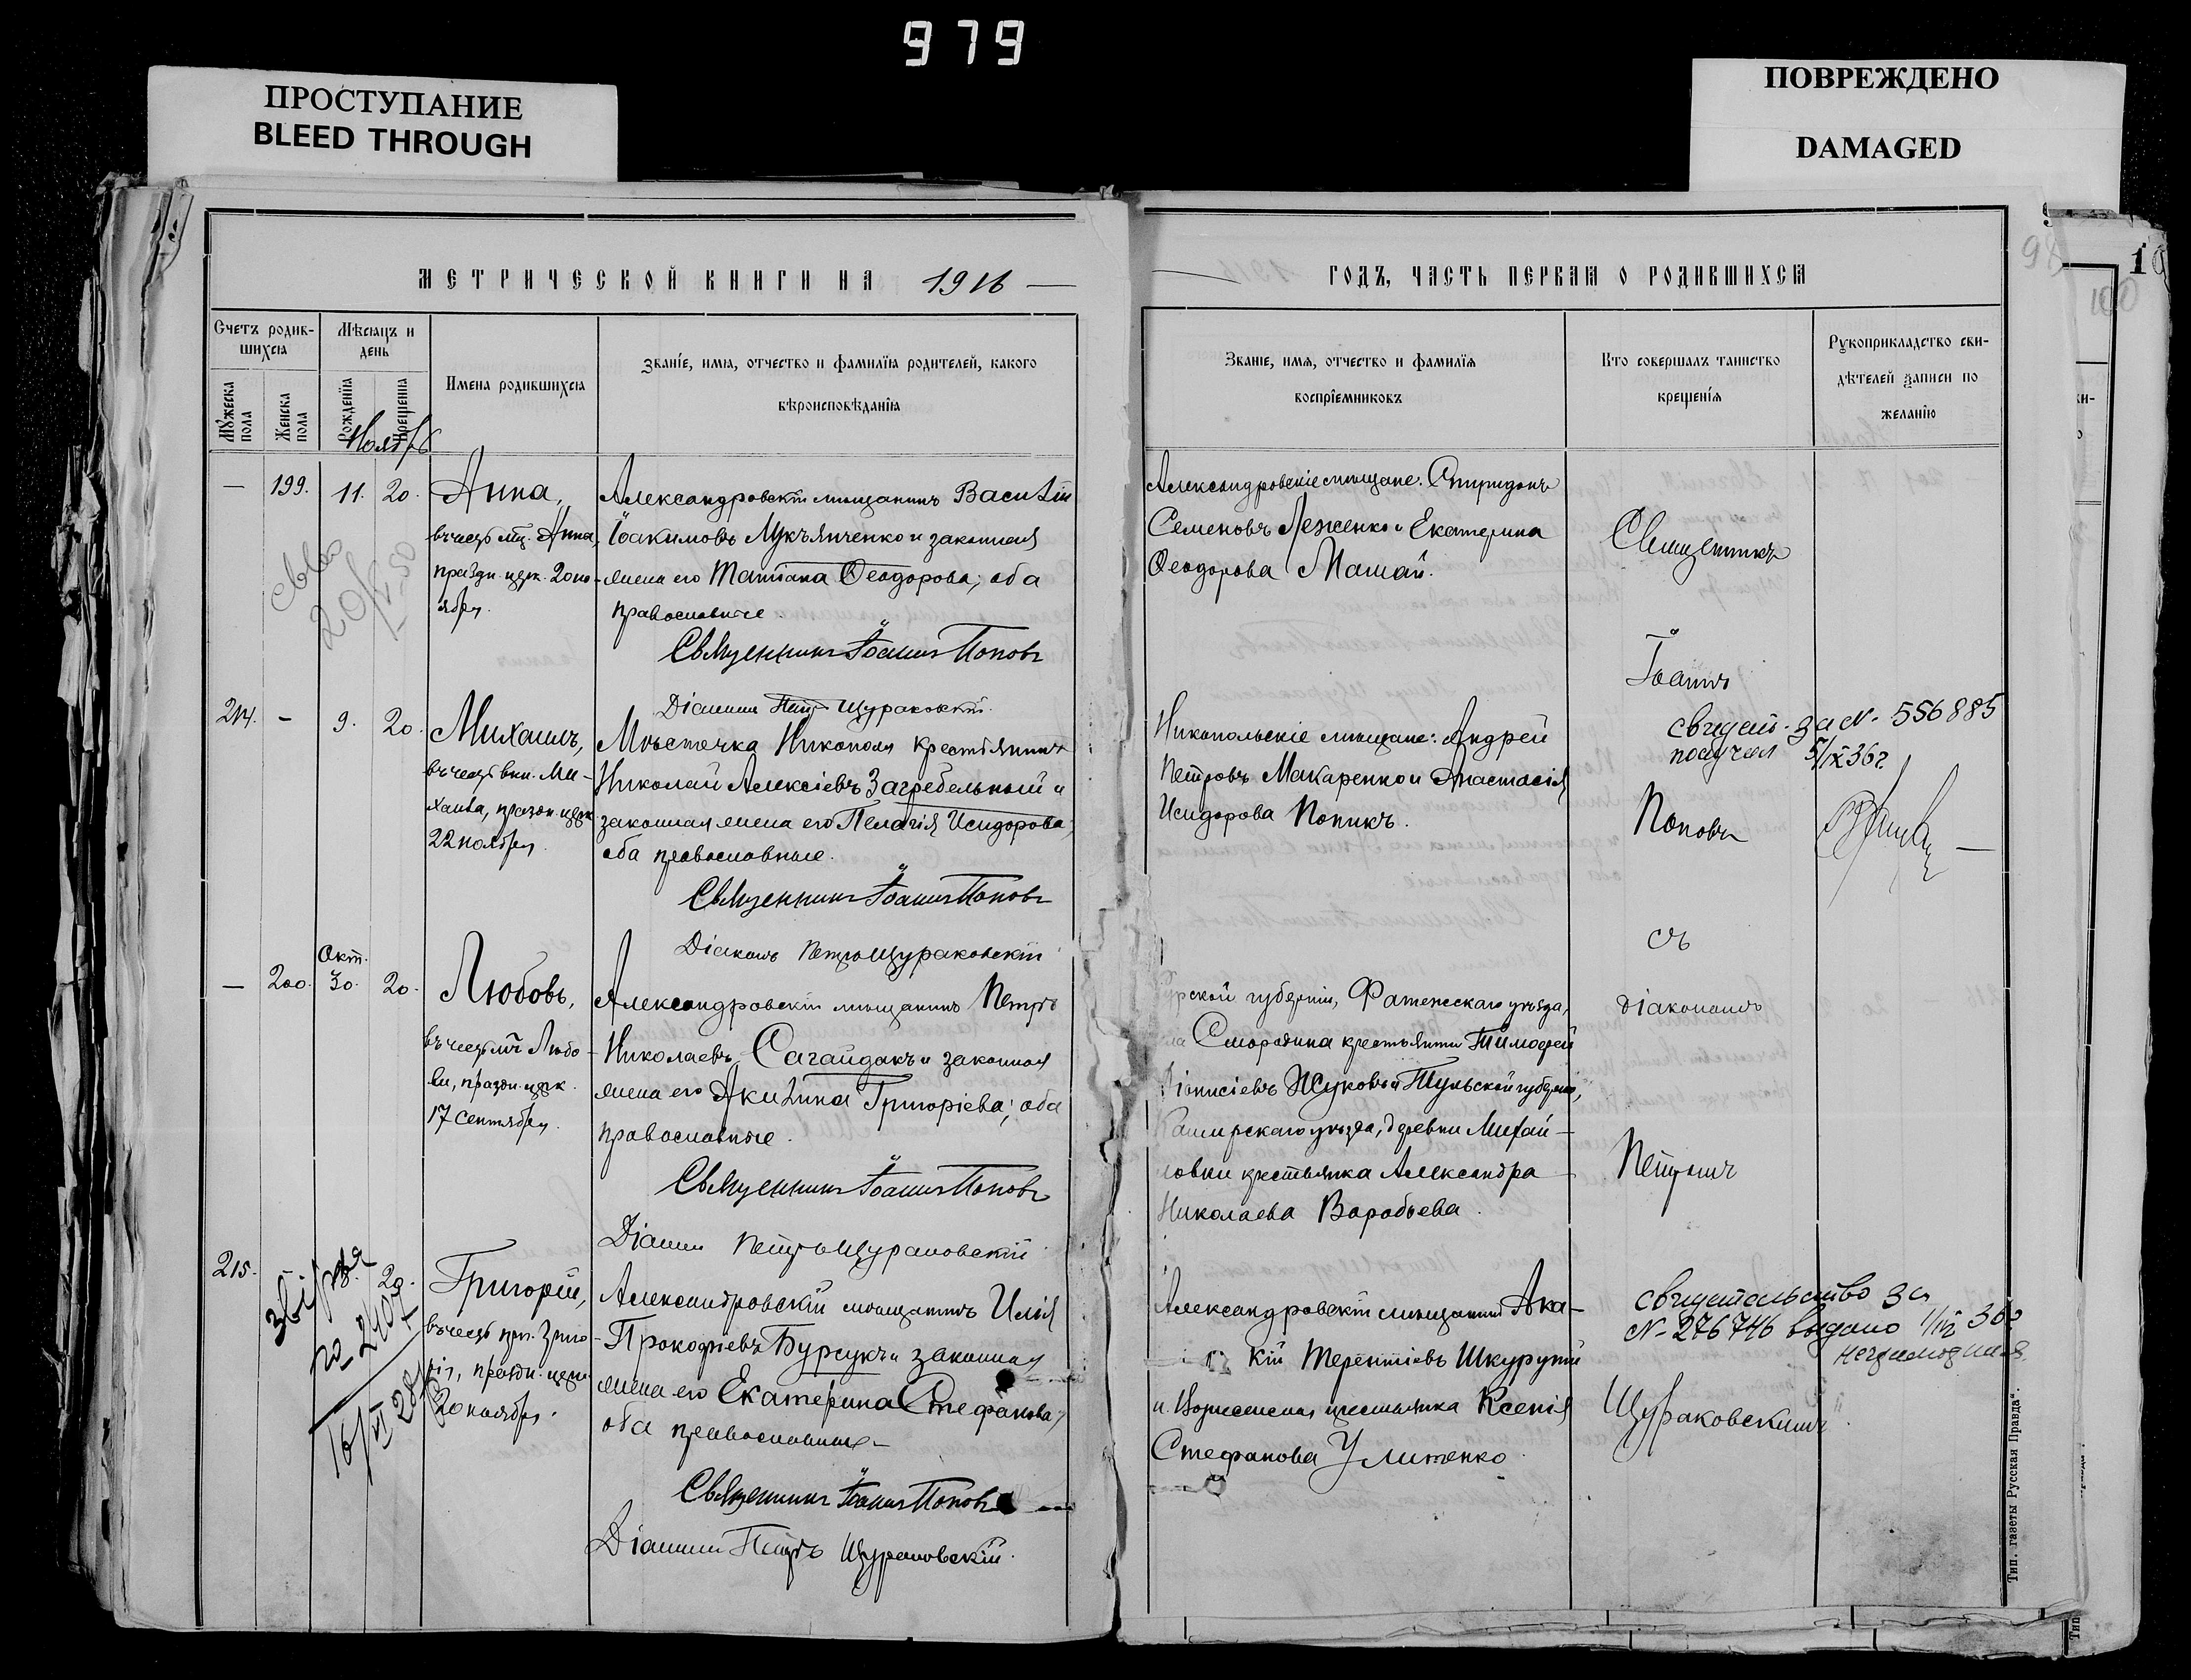 979
ПРОСТУПАНИЕ
BLEED THROUGH
ПОВРЕЖДЕНО
DAMAGED
МЕТРИЧЕСКОЙ КНИГИ НА 1916
Счетъ родив-
шихся
Мѣсяцъ и
день
Мужеска
пола
Женска
пола
Рожденія
Крещенія
Имена родившихся
Званіе, имя, отчество и фамилія родителей, какого
вѣроисповѣданія
Ноябрь
— 199. 11. 20.
Анна,
въ честь мц. Анна,
праздн. церк. 20 но-
ября.
Александровскій мѣщанинъ Василій
Іоакимовъ Лукъянченко и законная
жена его Татіана Ѳеодорова; оба
православные.
Священникъ Іоаннъ Поповъ
Діаконъ Петръ Щураковскій.
20/V-50
214. — 9. 20.
Михаилъ,
въ честь вкн. Ми-
хаила, праздн. церк.
22 ноября.
Мѣстечка Никополя крестьянинъ
Николай Алексіевъ Загребельный и
законная жена его Пелагія Исидорова;
оба православные.
Священникъ Іоаннъ Поповъ
Діаконъ Петръ Щураковскій
— 200. Окт. 30. 20.
Любовь,
въ честь мц. Любо-
ви, праздн. церк.
17 сентября.
Александровскій мѣщанинъ Петръ
Николаевъ Сагайдакъ и законная
жена его Акилина Григоріева; оба
православные.
Священникъ Іоаннъ Поповъ
Діаконъ Петръ Щураковскій
215. 20.
Григорій,
въ честь прп. Григо-
рія, праздн. церк.
20 ноября.
Александровскій мѣщанинъ Илія
Прокофіевъ Бурсукъ и законная
жена его Екатерина Стефанова;
оба православные
Священникъ Іоаннъ Поповъ
Діаконъ Петръ Щураковскій.
16/VI 28
ГОДЪ, ЧАСТЬ ПЕРВАЯ О РОДИВШИХСЯ
98
100
Званіе, имя, отчество и фамилія
воспріемниковъ
Кто совершалъ таинство
крещенія
Рукоприкладство сви-
дѣтелей записи по
желанію
Александровскіе мѣщане: Спиридонъ
Семеновъ Леженко и Екатерина
Ѳеодорова Машай.
Священникъ
Іоаннъ
Никопольскіе мѣщане: Андрей
Петровъ Макаренко и Анастасія
Исидорова Попикъ.
свидет. за N. 556885
получил 5/IX 36 г
Поповъ
съ
Курской губерніи, Фатежскаго уѣзда,
Смородина крестьянинъ Тимофей
Діонисіевъ Жуковъ и Тульской губерніи,
Каширскаго уѣзда, деревни Михай-
ловки крестьянка Александра
Николаева Воробьева.
діакономъ
Петромъ
Александровскій мѣщанинъ Ака-
кій Терентіевъ Шкурупій
и крестьянка Ксенія
Стефанова Улитенко
свидетельство за
N- 276746 выдано
Щураковскимъ
Тип. газеты „Русская Правда“.